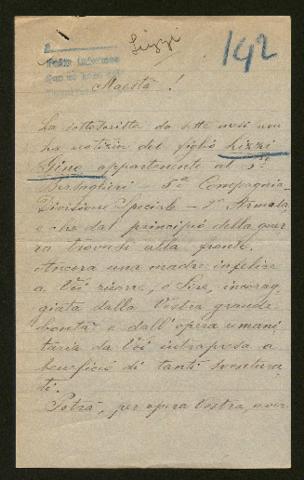 Lizzi
142
Maestà!
La sottoscritta da sette mesi non
ha notizia del figlio Lizzi
Gino appartenente al 5°
Bersaglieri - 5a Compagnia
Divisione Speciale - 1a Armata,
e che dal principio della guer
ra trovasi alla fronte.
Ancora una madre infelice
a Voi ricorre, o Sire, incorag
giata dalla Vostra grande
bontà e dall'opera umani
taria da Voi intrapresa a
beneficio di tanti sventura
ti.
Potrà, per opera Vostra, aver